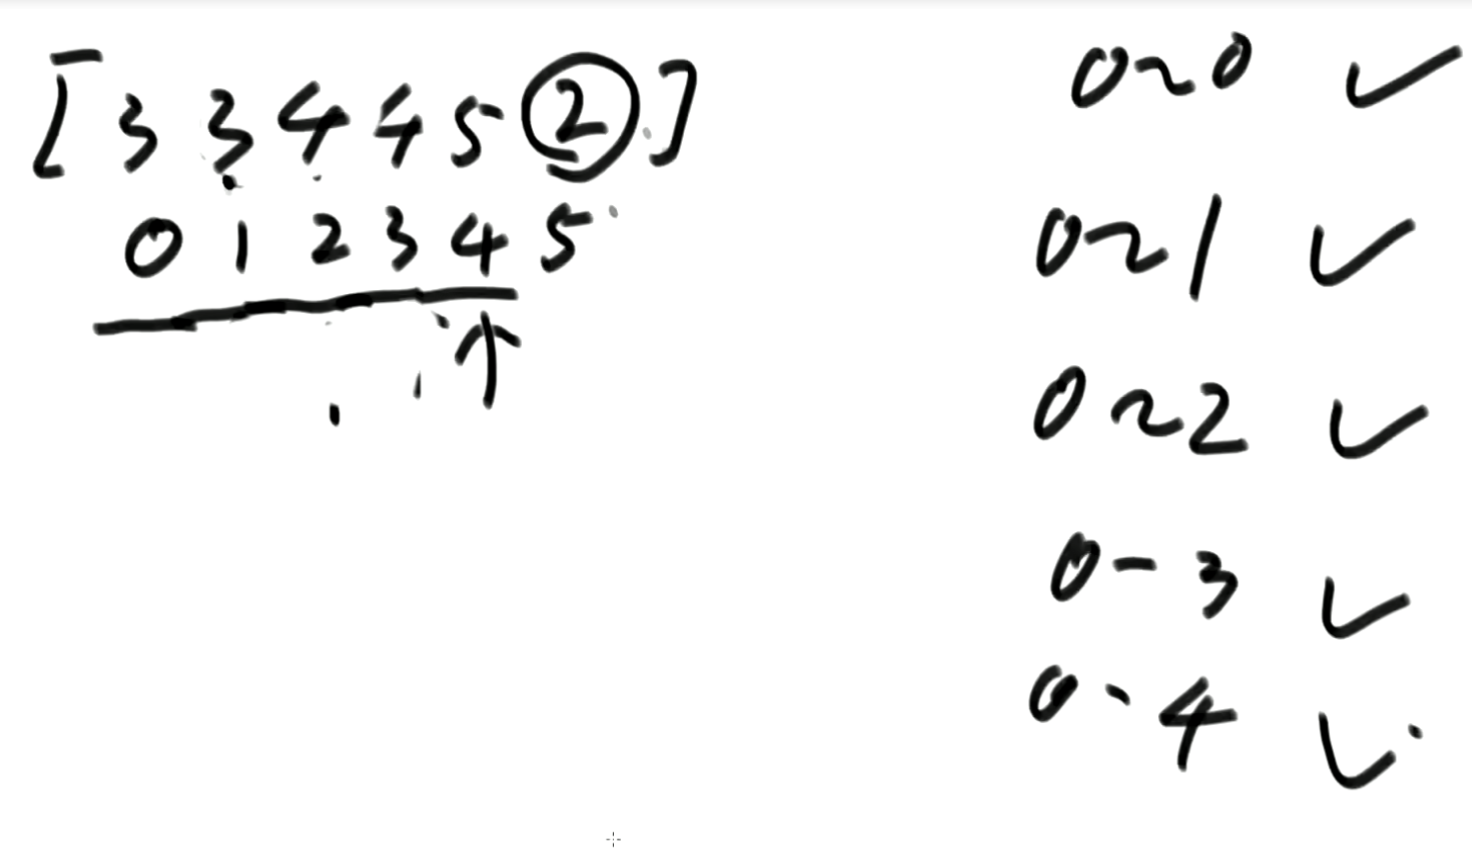 [ 3 3 4 4 5 2 ]
0 1 2 3 4 5
↑
0~0 ✓
0~1 ✓
0~2 ✓
0-3 ✓
0-4 ✓